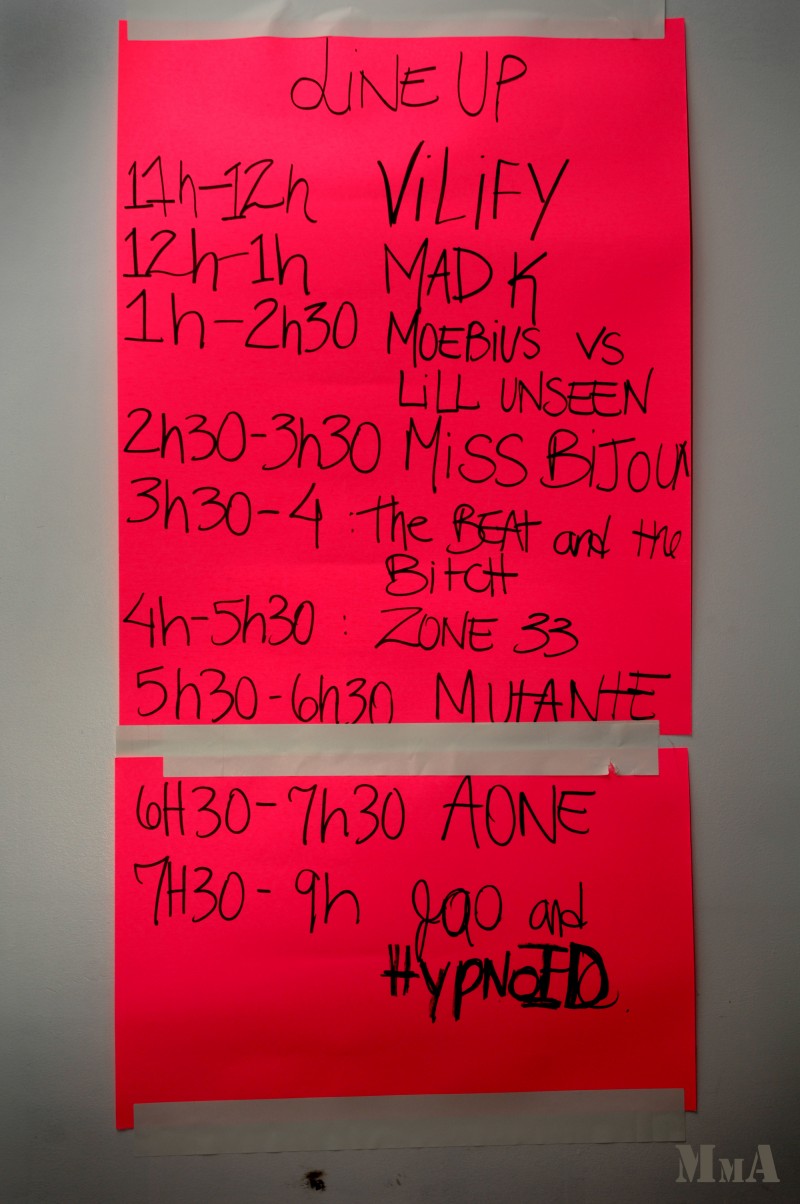 LiNE UP
11h-12h ViLiFY
12h-1h MAD K
1h-2h30 MOEBiUS VS
LiLL UNSEEN
2h30-3h30 MiSS BiJOUX
3h30-4 : the BEAt and the
BitCH
4h-5h30 : ZONE 33
5h30-6h30 MUtANtE
6H30-7h30 AONE
7H30-9h Jao and
HYPNOID
MMA